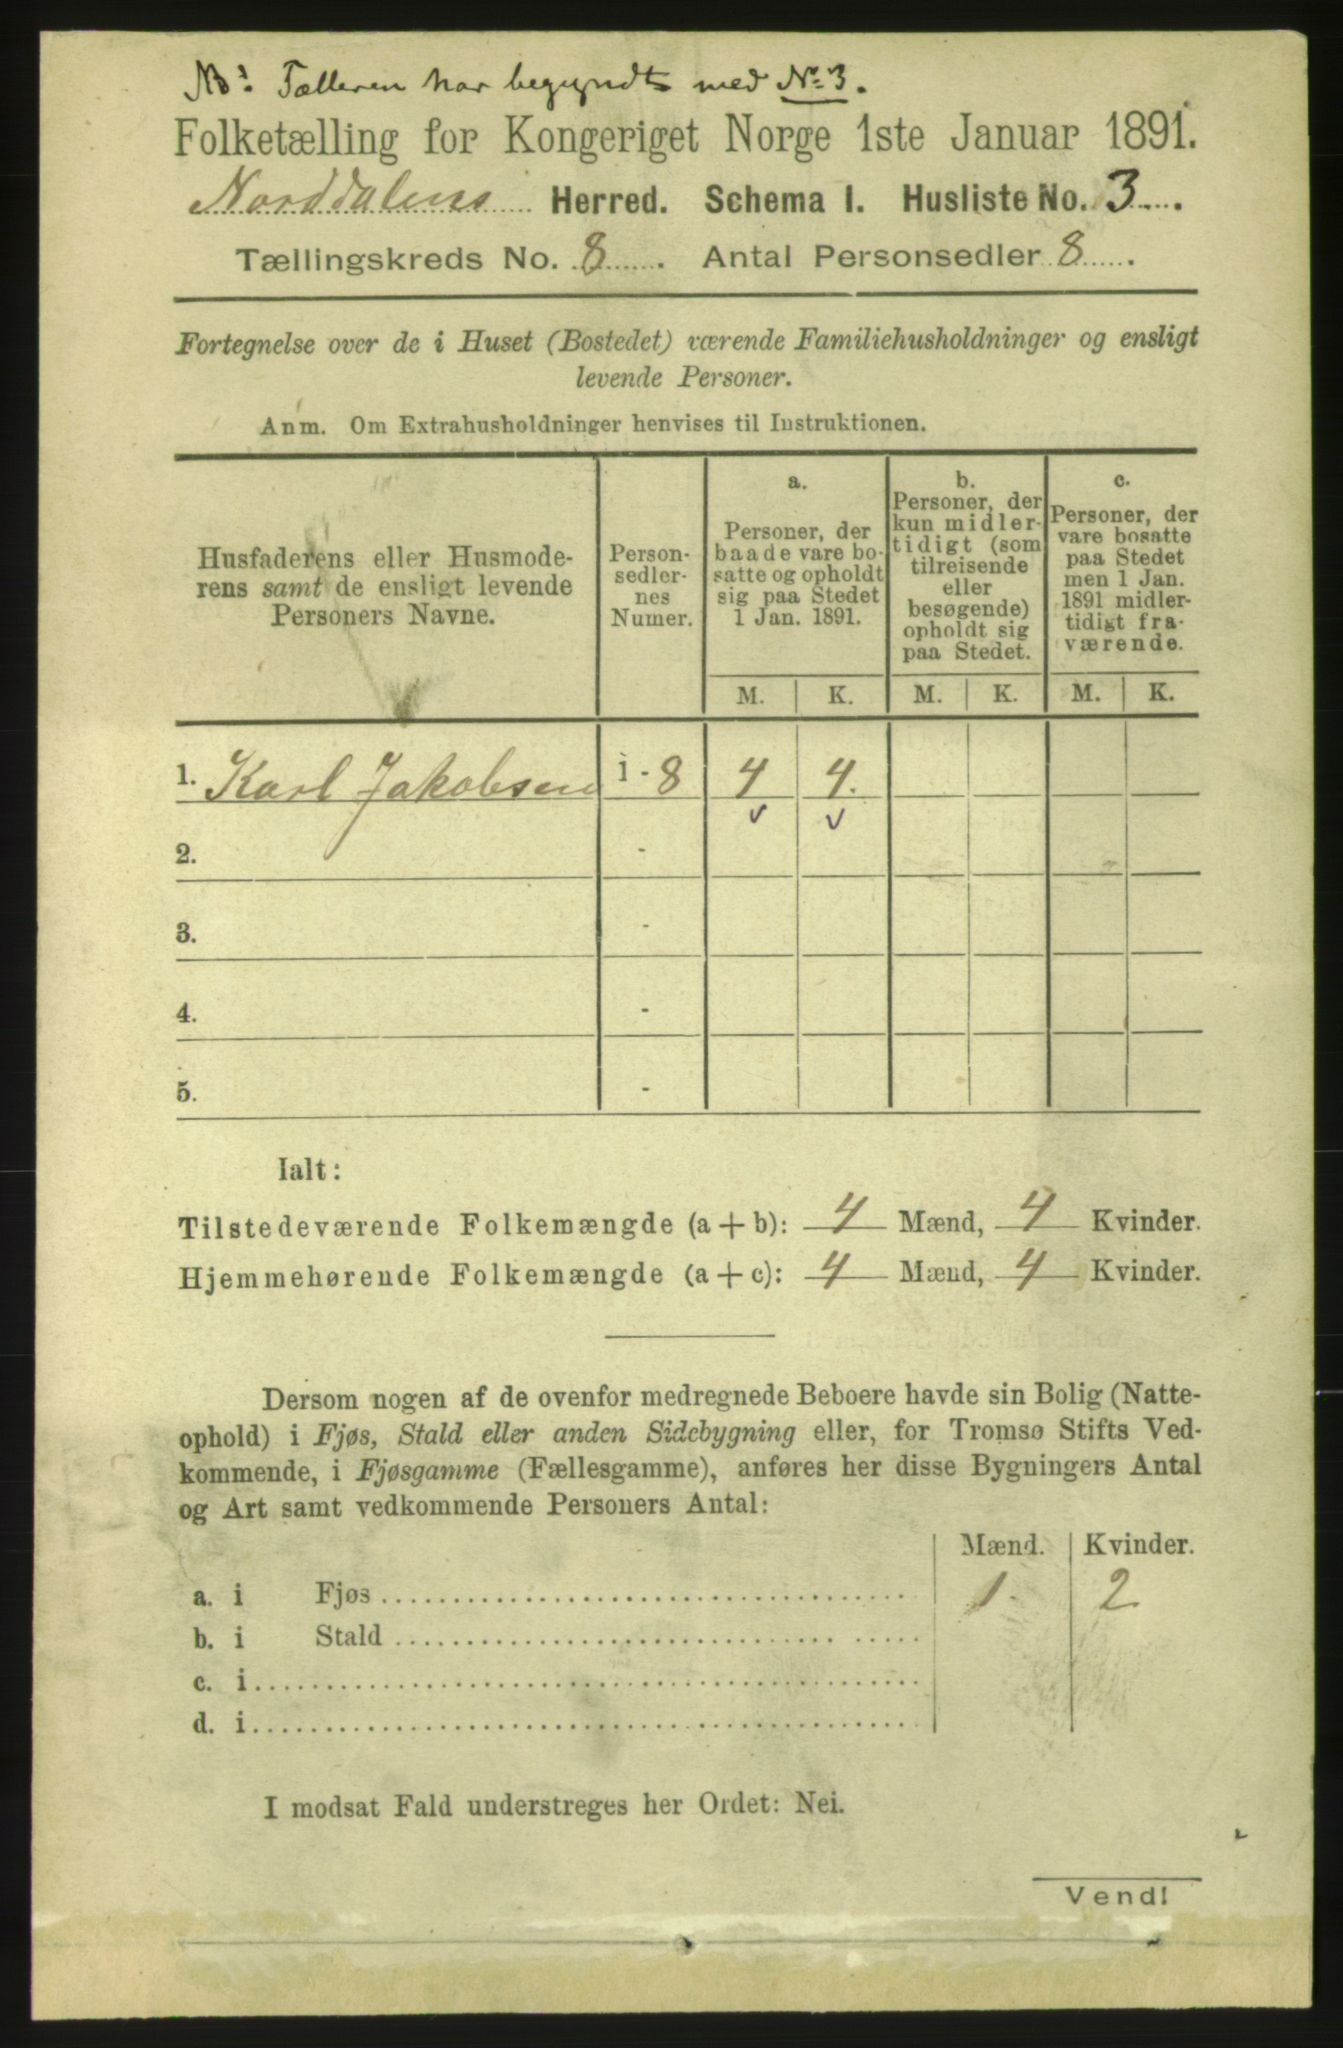 NB: Tælleren har begyndt med No 3.
Folketælling for Kongeriget Norge 1ste Januar 1891.
Norddalens Herred. Schema I. Husliste No. 3.
Tællingskreds No. 8. Antal Personsedler 8.
Fortegnelse over de i Huset (Bostedet) værende Familiehusholdninger og ensligt
levende Personer.
Anm. Om Extrahusholdninger henvises til Instruktionen.
Husfaderens eller Husmode-
rens samt de ensligt levende
Personers Navne.
Person-
sedler-
nes
Numer.
a.
Personer, der
baade vare bo-
satte og opholdt
sig paa Stedet
1 Jan. 1891.
b.
Personer, der
kun midler-
tidigt (som
tilreisende
eller
besøgende)
opholdt sig
paa Stedet.
c.
Personer, der
vare bosatte
paa Stedet
men 1 Jan.
1891 midler-
tidigt fra-
værende.
M. K. M. K. M. K.
1. Karl Jakobsen 1 - 8 4 4.
2. -
3. -
4. -
5. -
Ialt:
Tilstedeværende Folkemængde (a + b): 4 Mænd, 4 Kvinder.
Hjemmehørende Folkemængde (a + c): 4 Mænd, 4 Kvinder.
Dersom nogen af de ovenfor medregnede Beboere havde sin Bolig (Natte-
ophold) i Fjøs, Stald eller anden Sidebygning eller, for Tromsø Stifts Ved-
kommende, i Fjøsgamme (Fællesgamme), anføres her disse Bygningers Antal
og Art samt vedkommende Personers Antal:
Mænd. Kvinder.
a. i Fjøs 1. 2
b. i Stald
c. i
d. i
I modsat Fald understreges her Ordet: Nei.
Vend!